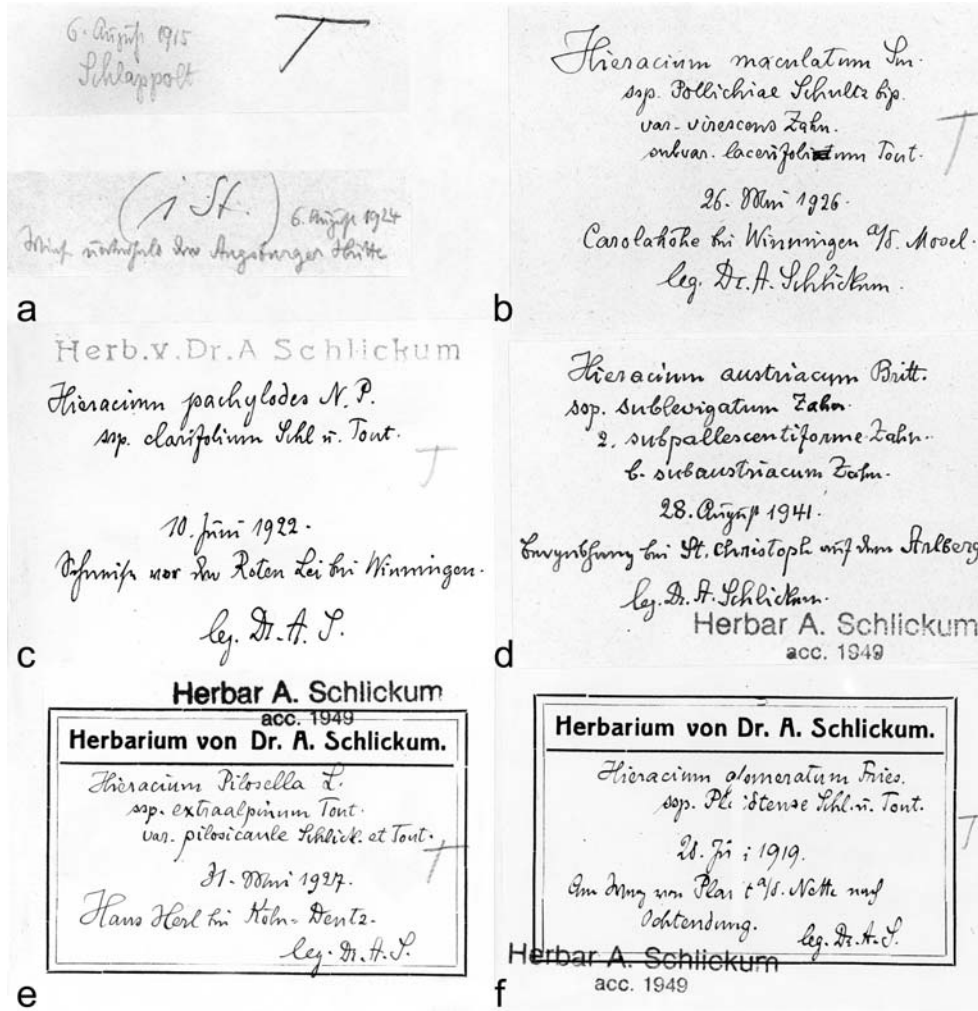 6. August 1915
Schlappolt
T
(1 St.)
6. August 1924
Wiese unterhalb der Augsburger Hütte
a
Hieracium maculatum Sm.
ssp. Pollichiae Schultz bip.
var. virescens Zahn.
subvar. lacerifolium Tout.
T
26. Mai 1926.
Carolahöhe bei Winningen a/d. Mosel.
leg. Dr. A. Schlickum.
b
Herb. v. Dr. A Schlickum
Hieracium pachylodes N. P.
ssp. clarifolium Schl u. Tout.
T
10. Juni 1922.
Schneise vor der Roten Lei bei Winningen.
leg. Dr. A. S.
c
Hieracium austriacum Britt.
ssp. sublevigatum Zahn.
2. subpallescentiforme Zahn.
b. subaustriacum Zahn.
28. August 1941.
bei St. Christoph auf dem Arlberg
leg. Dr. A. Schlickum.
Herbar A. Schlickum
acc. 1949
d
Herbar A. Schlickum
acc. 1949
Herbarium von Dr. A. Schlickum.
Hieracium Pilosella L.
ssp. extraalpinum Tout.
var. pilosicaule Schlick. et Tout.
T
31. Mai 1927.
Haus Herl bei Köln-Deutz.
leg. Dr. A. S.
e
Herbarium von Dr. A. Schlickum.
Hieracium glomeratum Fries.
ssp. Schl. u. Tout.
T
28. 1919.
Am Weg von a/d. Nette nach
Ochtendung.
leg. Dr. A. S.
Herbar A. Schlickum
acc. 1949
f